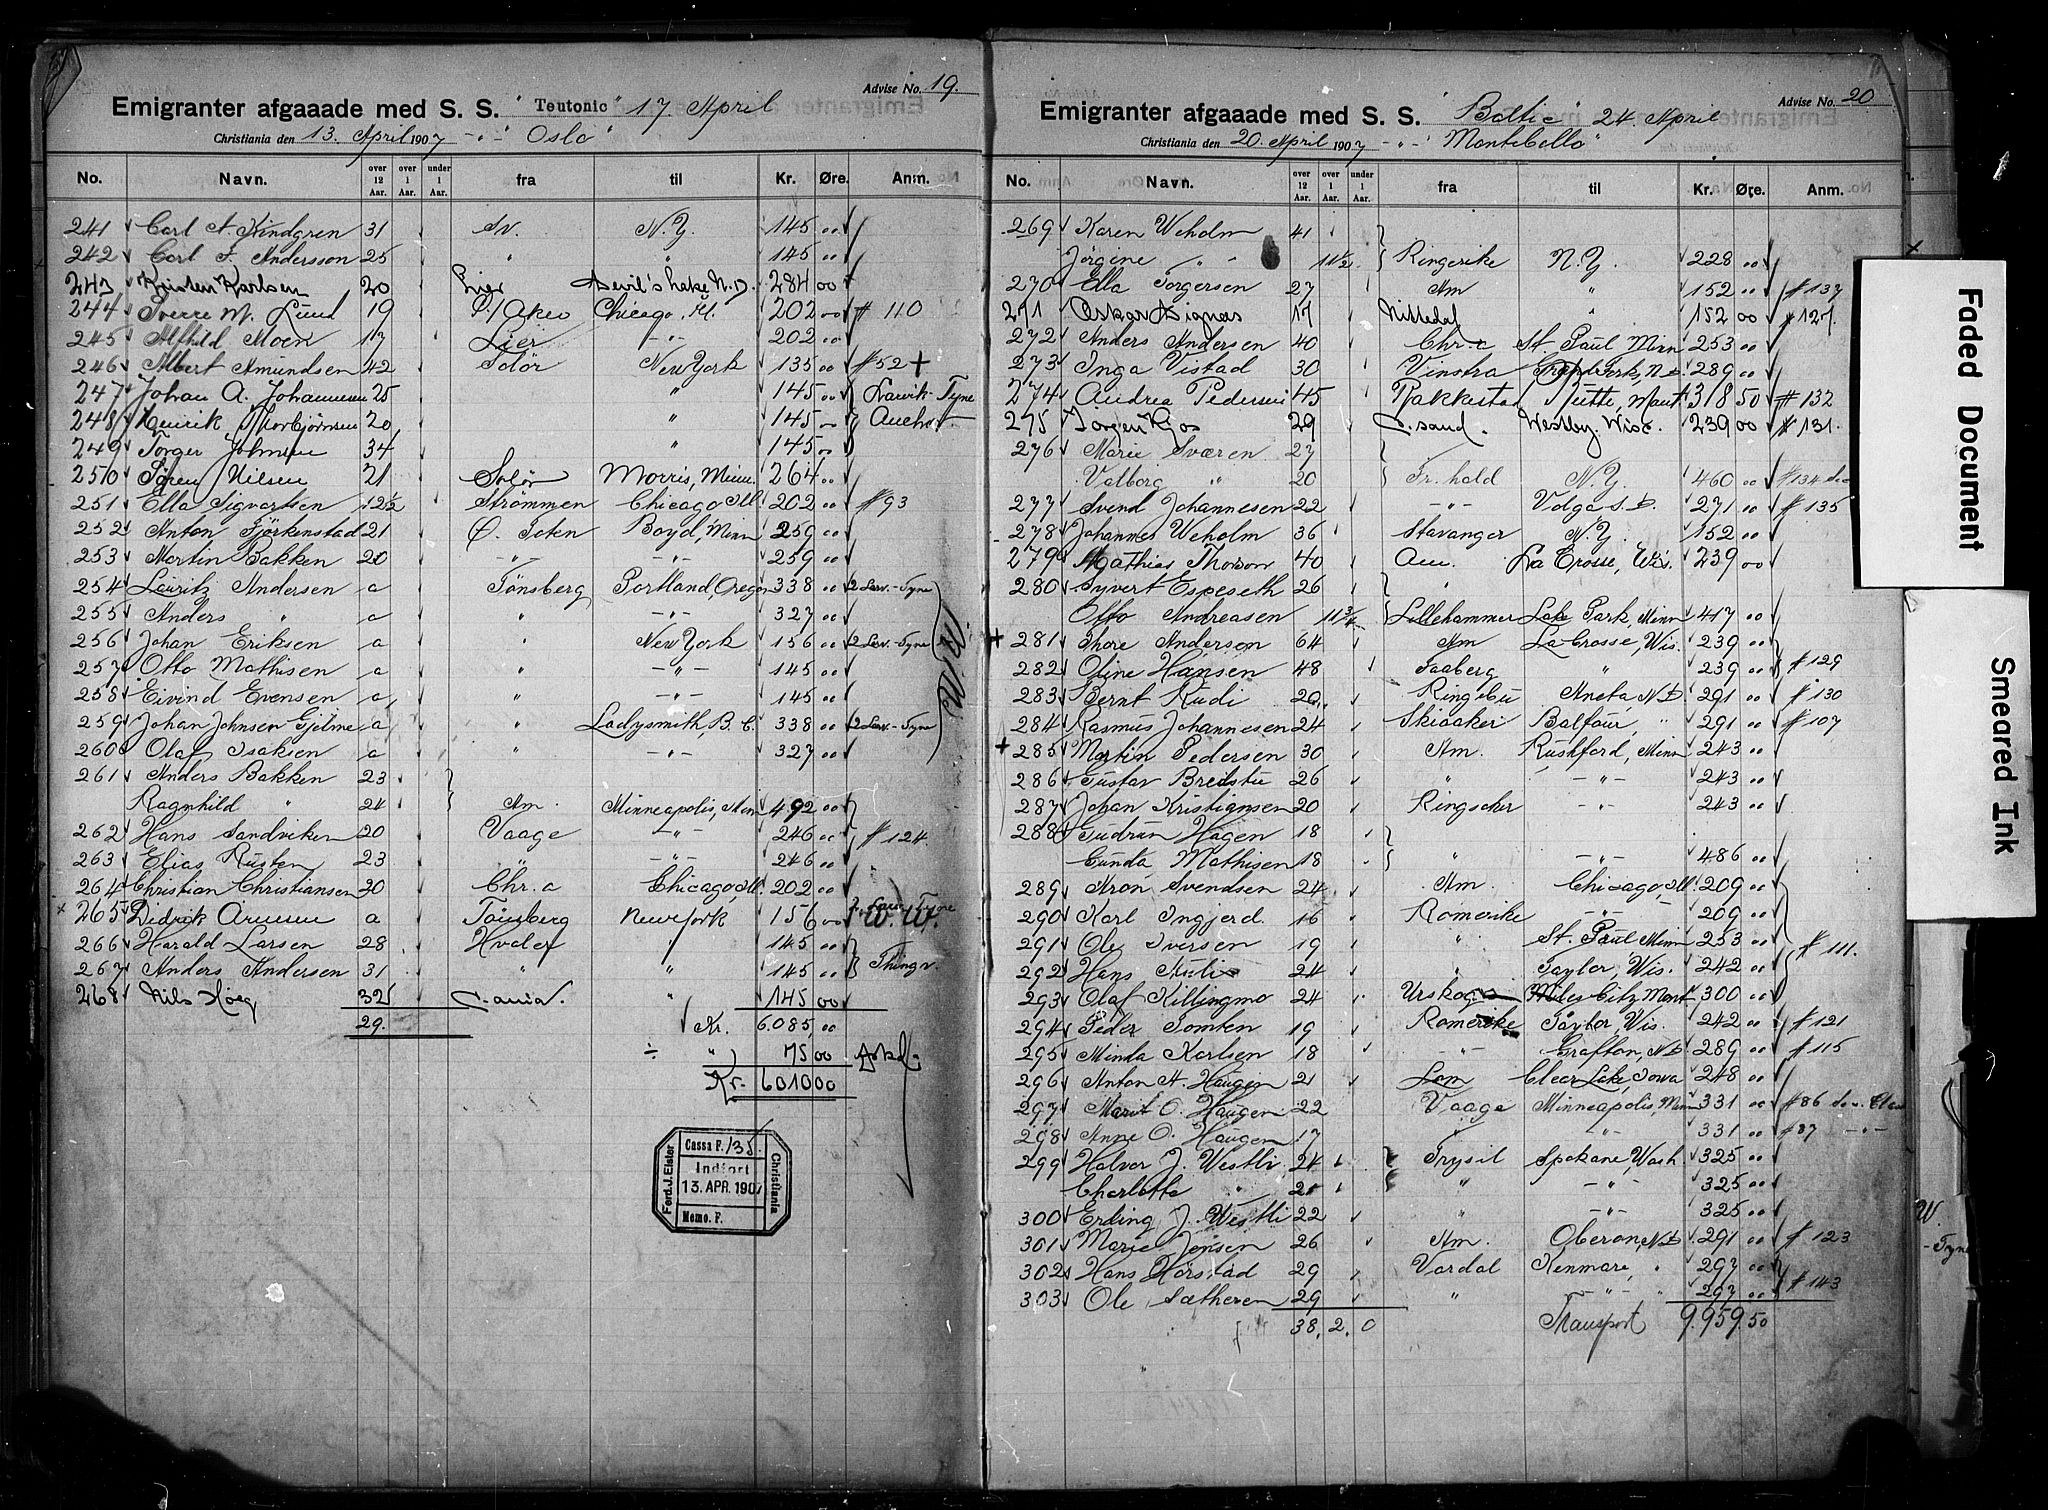 Advise No. 19.
Emigranter afgaaade med S. S. "Teutonic" 17 April
Christiania den 13. April 1907 -"- "Oslo"
No. Navn. over 12 Aar. over 1 Aar. under 1 Aar. fra til Kr. Øre. Anm.
241 Carl A Kindgren 31 Sv. N.Y. 145 00
242 Carl F. Andersson 25 " " 145 00
243 Kristen Karlsen 20 Lier Devil's Lake N.D. 284 00
244 Sverre M. Lund 19 Chicago, Ill. 202 00 # 110
245 Alfhild Moen 17 Lier -"- 202 00
246 Albert Amundsen 42 Solør New York 135 00 #52 +
247 Johan A. Johannesen 25 " 145 00 Larvik-Tyne
248 Henrik Thorbjörnsen 20 " 145 00
249 Torger Johnsen 34 " 145 00
250 Sören Nilsen 21 Solør Morris, Minn. 264 00
251 Ella Sigvartsen 12 1/2 Strömmen Chicago Ill. 202 00 # 93
252 Anton Fjörkenstad 21 Ö. Toten Boyd, Minn 259 00
253 Martin Bakken 20 -"- -"- 259 00
254 Lauritz Andersen a Tönsberg Portland, Oregon 338 00 2 Larv.-Tyne
255 Anders " a " -"- 327 00
256 Johan Eriksen a " New York 156 00 2 Larv.-Tyne
257 Otto Mathisen a " -"- 145 00
258 Eivind Evensen a " -"- 145 00
259 Johan Johnsen Gjelme a " Ladysmith, B.C. 338 00 2 Larv.-Tyne
260 Olaf Isaksen a " -"- 327 00
261 Anders Bakken 23
Ragnhild " 24 Am. Minneapolis, Minn 492 00
262 Hans Sandviken 20 Vaage -"- 246 00 # 124
263 Elias Rusten 23 -"- 246 00
264 Christian Christiansen 30 Chr.a Chicago, Ill. 202 00
265 Didrik Arnesen a Tönsberg New York 156 00 W. W.
266 Harald Larsen 28 Hvaler " 145 00
267 Anders Andersen 31 " " 145 00 Thingv.
268 Nils Höeg 32 C.ania. " 145 00
29. Kr. 6.085,00
÷ " 75 00
Kr. 6010 00
Ferd. J. Elster
Cassa F. 135
Indført
13. APR. 1907
Memo. F.
Christiania
Advise No. 20
Emigranter afgaaade med S. S. "Baltic" 24. April
Christiania den 20. April 1907 -"- "Montebello"
No. Navn. over 12 Aar. over 1 Aar. under 1 Aar. fra til Kr. Øre. Anm.
269 Karen Weholm 41
Jörgine " 11 1/2 Ringerike N.Y. 228 00
270 Ella Torgersen 27 Am " 152 00 # 137
271 Oskar Aignæs 17 Nittedal " 152 00 # 127.
272 Anders Andersen 40 Chr.a St Paul Minn 253 00
273 Inga Vistad 30 Vinstra 289 00
274 Andrea Pedersen 45 Rakkestad Butte, Mont 318 50 # 132
275 Jörgen Kjos 29 C. sand. Westby. Wisc. 239 00 # 131.
276 Marie Sværen 27
Valborg " 20 Fr.hald N.Y. 460 00 # 134
277 Svend Johannesen 22 -"- Volga S.D. 271 00 # 135
278 Johannes Weholm 36 Stavanger N.Y. 152 00
279 Mathias Thorson 40 Am. La Crosse, Wis. 239 00
280 Syvert Espeseth 26 "
Otto Andreasen 11 3/4 Lillehammer Lake Park, Minn 417 00
281 Thore Anderson 64 Am La Crosse, Wis. 239 00
282 Oline Hansen 48 Faaberg " 239 00 # 129
283 Bernt Rudi 20 Ringebu Aneta, N.D. 291 00 # 130
284 Rasmus Johannesen 24 Skiaaker Balfour, " 291 00 # 107
285 Martin Pedersen 30 Am. Rushford, Minn 243 00
286 Gustav Bredstu 26 " -"- 243 00
287 Johan Kristiansen 20 Ringsaker -"- 243 00
288 Gudrun Hagen 18
Gunda Mathisen 18 " -"- 486 00
289 Aron Svendsen 24 Am. Chicago, Ill. 209 00
290 Karl Ingjerd. 16 Romerike -"- 209 00
291 Ole Iversen 19 " St. Paul Minn 253 00 # 111.
292 Hans Kuli 24 " Taylor, Wis. 242 00
293 Olaf Killingmo 24 Urskog Miles City Mont 300 00
294 Peder Tomten 19 Romerike Taylor, Wis. 242 00 # 121
295 Minda Karlsen 18 -"- Grafton, N.D. 289 00 # 115
296 Anton H. Haugen 21 Lom Clear Lake, Iowa 248 00
297 Marit O. Haugen 22 Vaage Minneapolis, Minn 331 00 # 86
298 Anne O. Haugen 17 " -"- 331 00 # 87 -"-
299 Halvor J. Westli 24 Trysil Spokane, Wash. 325 00
Charlotte " 21 " -"- 325 00
300 Erling J. Westli 22 " -"- 325 00
301 Marie Jensen 26 Am. Oberon, N.D. 291 00 # 123
302 Hans Hörstad 29 Vardal Kenmare, " 297 00
303 Ole Sætheren 29 " -"- " 297 00 # 143
38. 2. 0 Transport 9.959.50
Faded Document
Smeared Ink